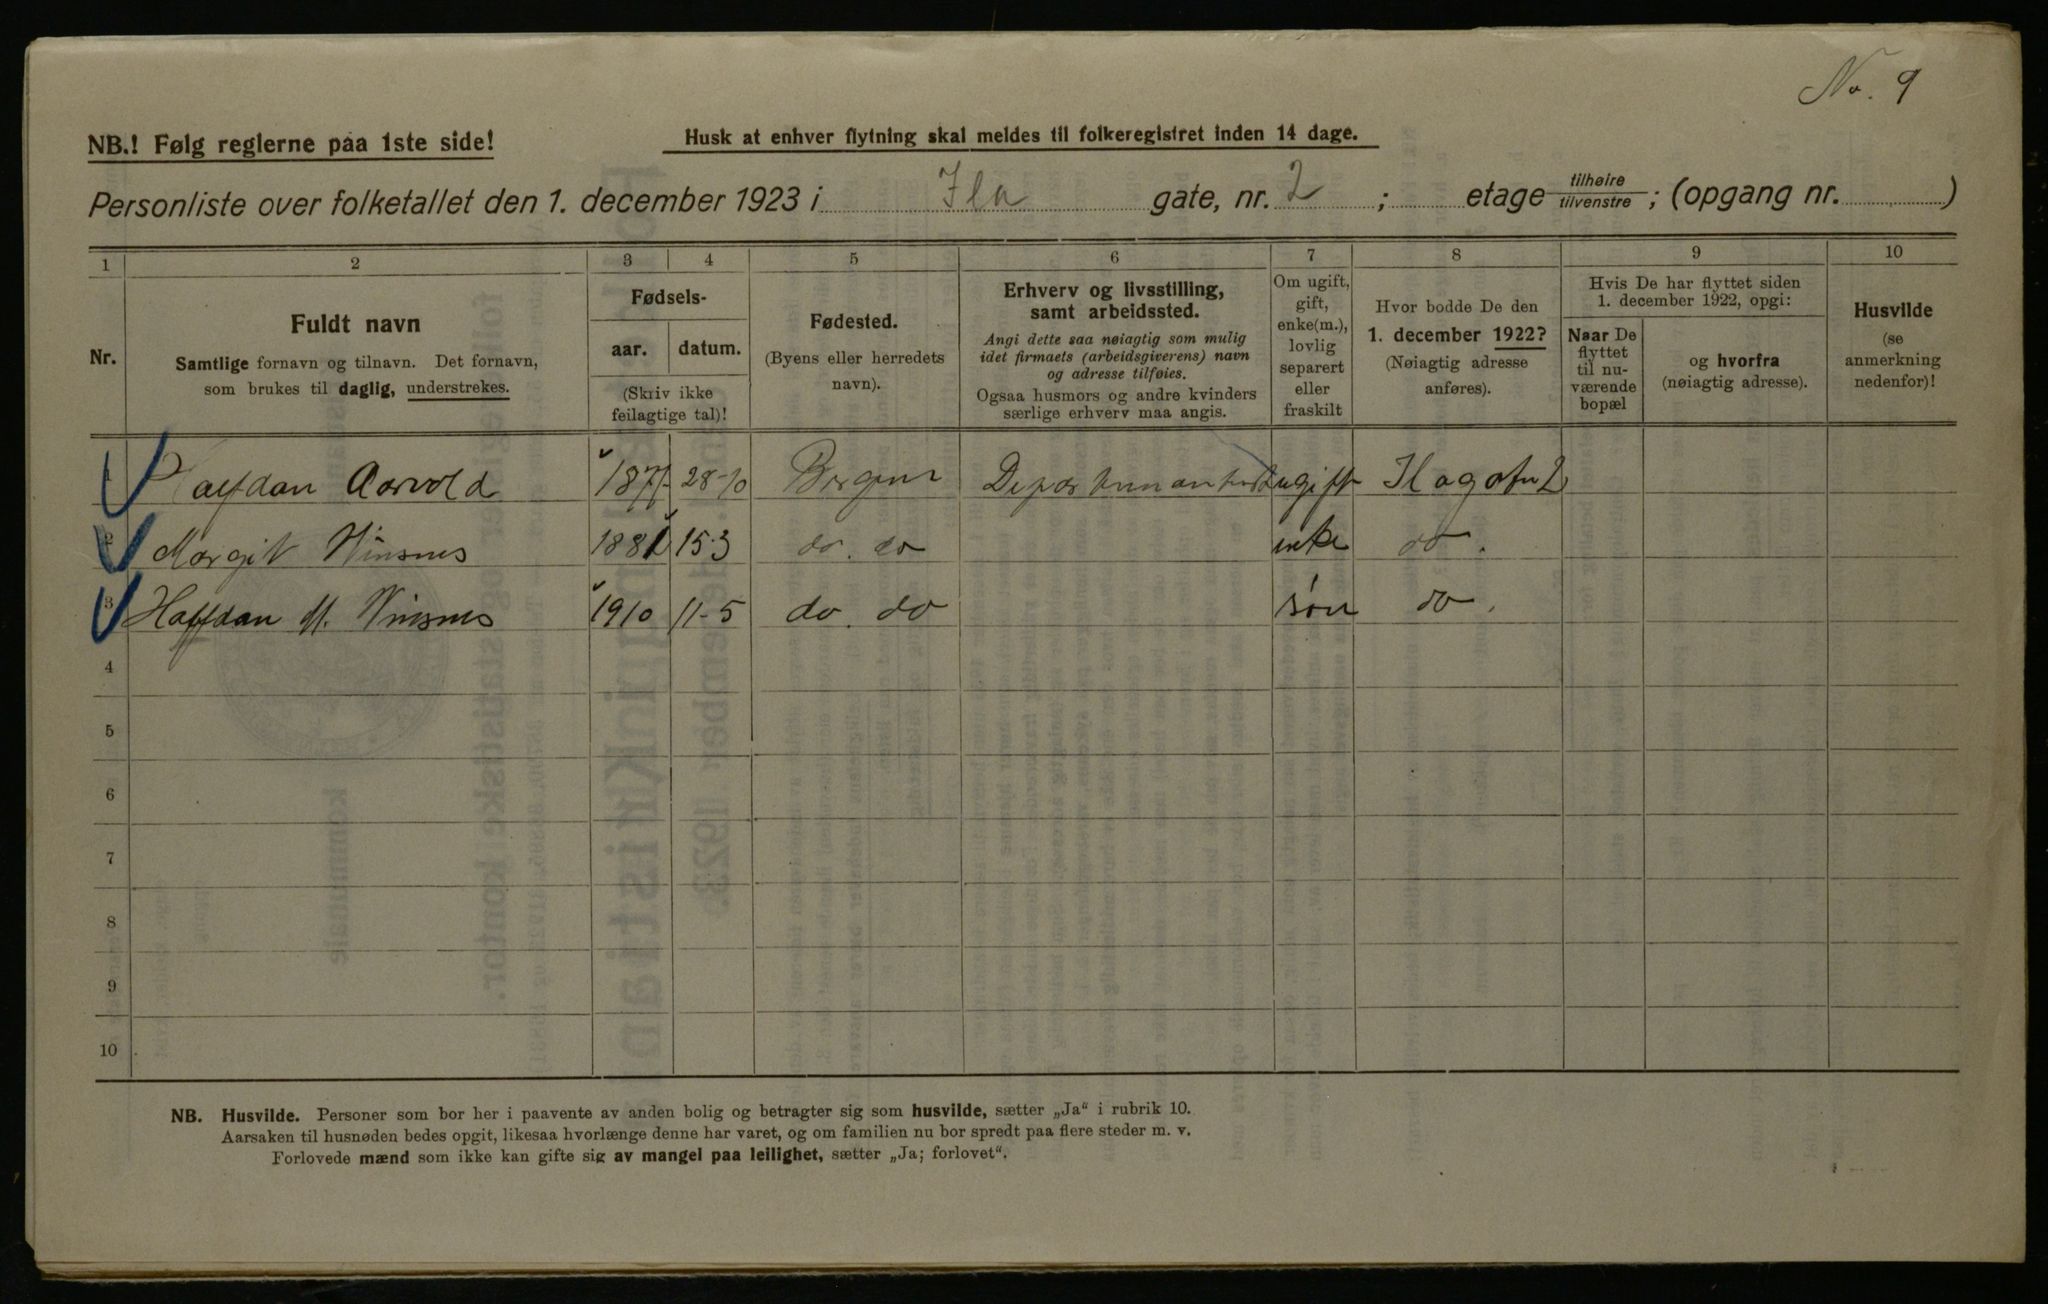 No. 9
NB.! Følg reglerne paa 1ste side!
Husk at enhver flytning skal meldes til folkeregistret inden 14 dage.
Personliste over folketallet den 1. december 1923 i Ila gate, nr. 2 ; etage tilhøire/tilvenstre ; (opgang nr. )
1 2 3 4 5 6 7 8 9 10
Nr.
Fuldt navn
Samtlige fornavn og tilnavn. Det fornavn,
som brukes til daglig, understrekes.
Fødsels-
aar. datum.
(Skriv ikke
feilagtige tal)!
Fødested.
(Byens eller herredets
navn).
Erhverv og livsstilling,
samt arbeidssted.
Angi dette saa nøiagtig som mulig
idet firmaets (arbeidsgiverens) navn
og adresse tilføies.
Ogsaa husmors og andre kvinders
særlige erhverv maa angis.
Om ugift,
gift,
enke(m.),
lovlig
separert
eller
fraskilt
Hvor bodde De den
1. december 1922?
(Nøiagtig adresse
anføres).
Hvis De har flyttet siden
1. december 1922, opgi:
Naar De
flyttet
til nu-
værende
bopæl
og hvorfra
(nøiagtig adresse).
Husvilde
(se
anmerkning
nedenfor)!
1 Halfdan Aarvold 1877 28-10 Bergen ugift Ilagaten 2
2 Margit Winsnes 1881 15-3 do. do enke do.
3 Halfdan M. Winsnes 1910 11-5 do. do søn do.
4
5
6
7
8
9
10
NB. Husvilde. Personer som bor her i paavente av anden bolig og betragter sig som husvilde, sætter „Ja“ i rubrik 10.
Aarsaken til husnøden bedes opgit, likesaa hvorlænge denne har varet, og om familien nu bor spredt paa flere steder m. v.
Forlovede mænd som ikke kan gifte sig av mangel paa leilighet, sætter „Ja; forlovet“.